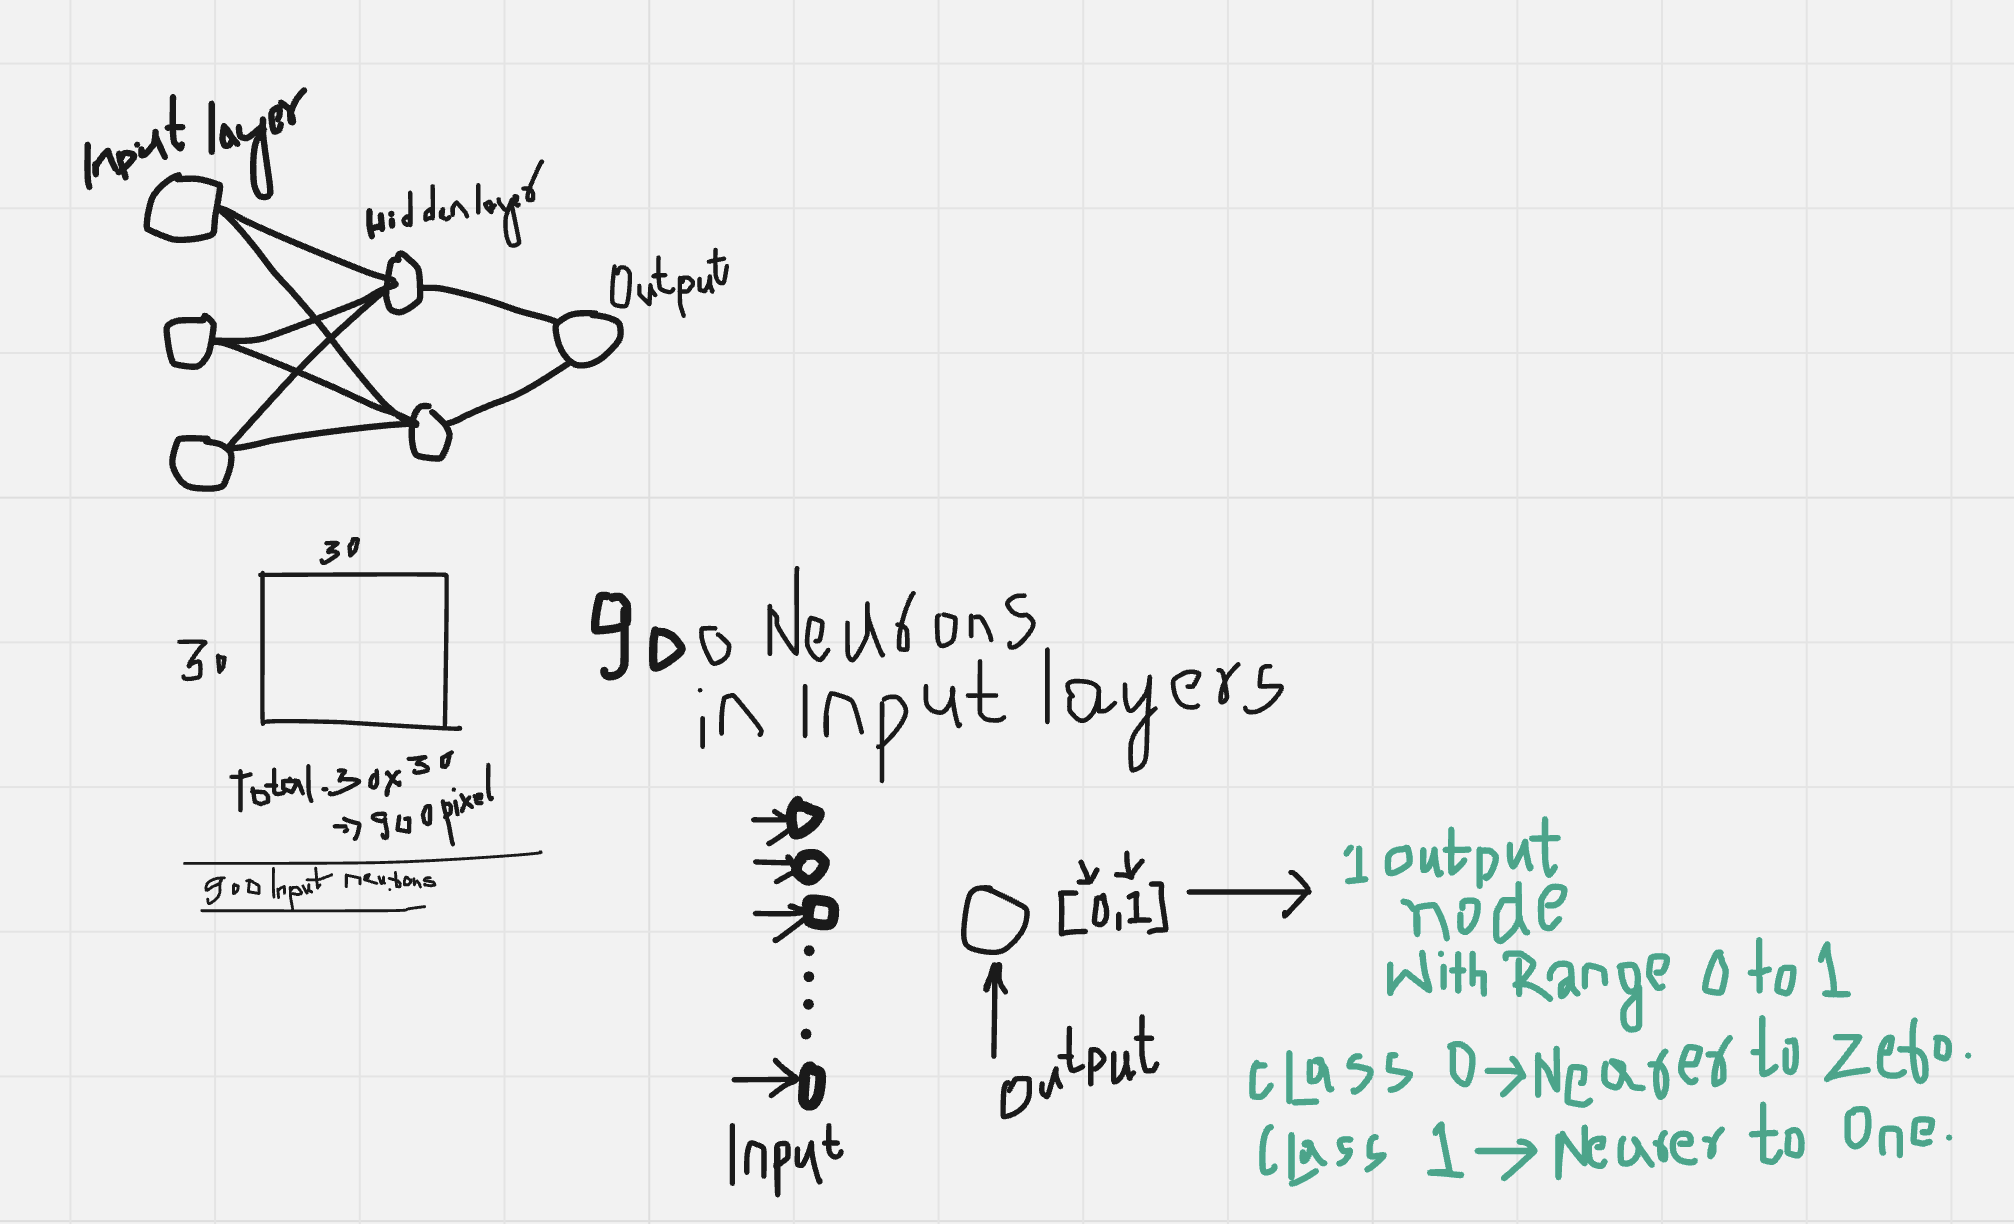 Input layer
Hidden layer
Output
30
30
Total-30x30
→ 900 pixel
900 Input neurons
900 Neurons
in Input layers
Input
Output
[0,1]
1 output
node
With Range 0 to 1
Class 0→Nearer to Zero.
Class 1→Nearer to One.